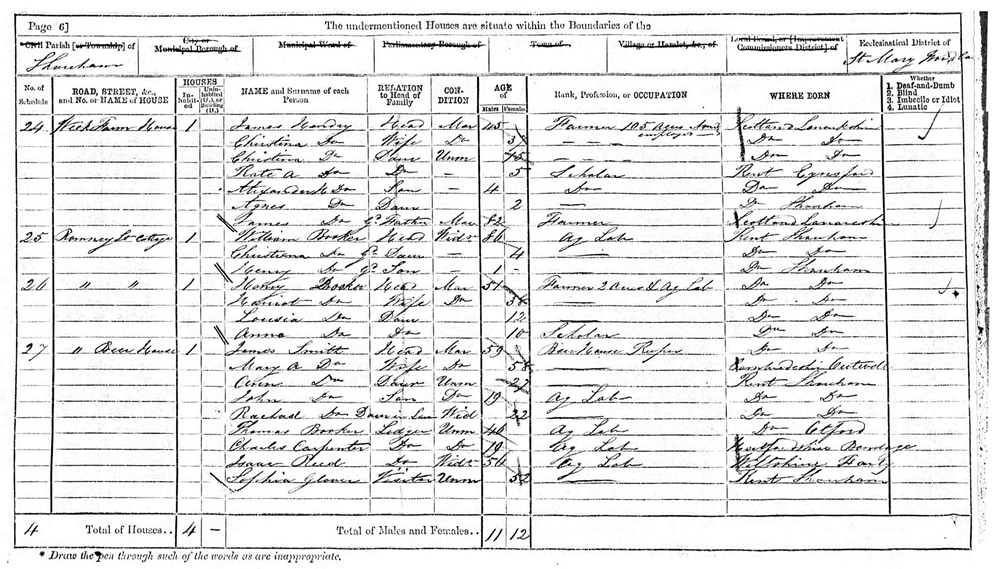 Page 6] The undermentioned Houses are situate within the Boundaries of the
Civil Parish [or Township] of City or Municipal Borough of Municipal Ward of Parliamentary Borough of Town of Village or Hamlet, &c., of Local Board, or [Improvement Commissioners District] of Ecclesiastical District of
Shoreham St Mary
No. of Schedule ROAD, STREET, &c., and No. or NAME of HOUSE HOUSES Inhabited Uninhabited (U.), or Building (B.) NAME and Surname of each Person RELATION to Head of Family CONDITION AGE of Males Females Rank, Profession, or OCCUPATION WHERE BORN Whether 1. Deaf-and-Dumb 2. Blind 3. Imbecile or Idiot 4. Lunatic
24 Farm House 1 James Hendry Head Mar 45 Farmer 105 Acres Scotland Lanarkshire
Christina Do Wife Do 37 Do Do
Christina Do Daur Unm Do Do
Kate A Do Do 5 Scholar Kent Eynsford
Alexander Do Son 4 Do Do Do
Agnes Do Daur 2 Do Shoreham
James Do Gd Father Mar 82 Farmer Scotland
25 Romney St Cottage 1 William Booker Head Widr 86 Ag Lab Kent Shoreham
Christiana Do Gd Daur 4 Do Do
Henry Do Gd Son 1 Do Shoreham
26 " " 1 Henry Booker Head Mar 51 Farmer 2 acres & Ag Lab Do Do
Harriot Do Wife Do Do Do
Louisa Do Daur 12 Do Do
Anna Do Do 10 Scholar Do Do
27 " Beer House 1 James Smith Head Mar 59 Beer House Do Do
Mary A Do Wife Do 58
Ann Do Daur Unm 27 Kent Shoreham
John Do Son Do 19 Ag Lab Do Do
Rachael Do Daur in Law Wid 22 Do Do
Thomas Booker Lodger Unm 46 Ag Lab Do Otford
Charles Carpenter Do Do 19 Ag Lab
Isaac Reed Do Widr 56 Ag Lab Wiltshire
Sophia Glover Visitor Unm 52 Kent Shoreham
4 Total of Houses.. 4 – Total of Males and Females.. 11 12
* Draw the pen through such of the words as are inappropriate.